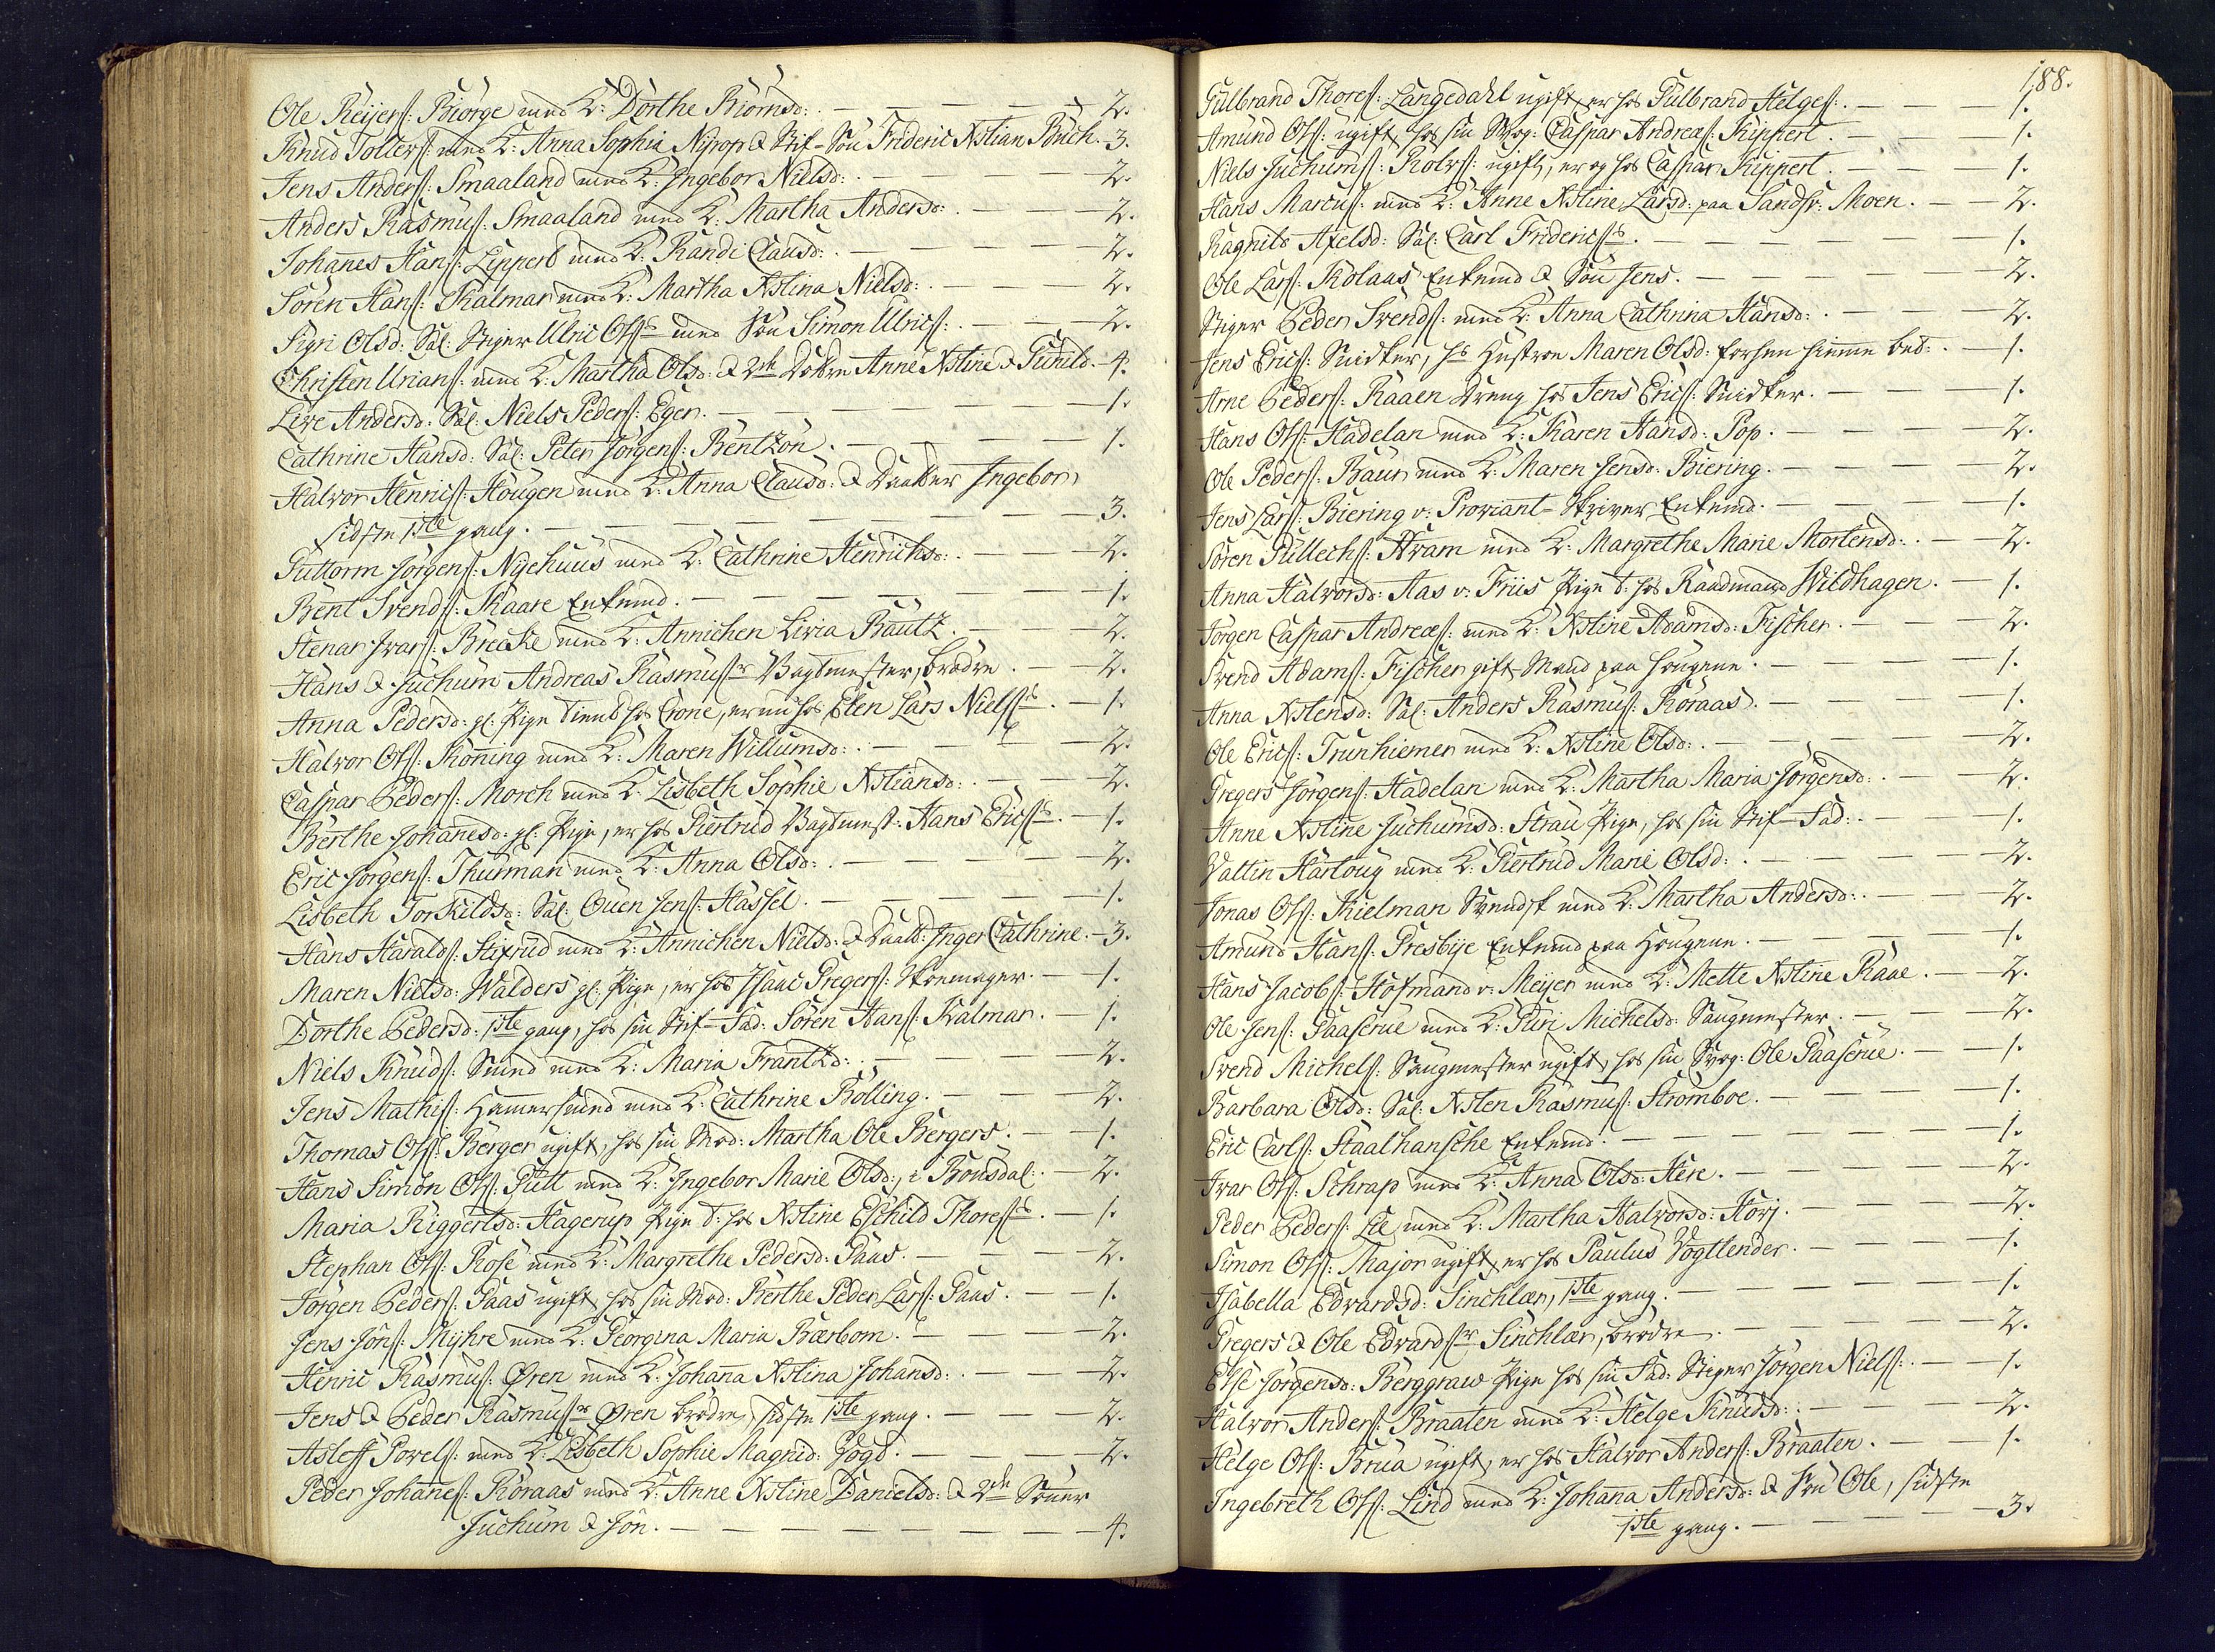 Ole Reijers: Biörge med K: Dorthe Biörnsd: — — — — — 2.
Knud Tollers: med K: Anna Sophia Nyrop & Stif-Sön Frideric Xstian Búch. 3.
Jens Anders: Smaaland med K: Ingebor Nielsd: — — — — 2.
Anders Rasmus: Smaaland med K: Martha Andersd: — — — 2.
Johanes Hans: Lippert med K: Randi Clausd: — — — — 2.
Sören Hans: Kalmar med K: Martha Xstina Nielsd: — — — 2.
Sigri Olsd: Sal: Stiger Ulric Ols: med Sön Simon Ulrics: — — 2.
Christen Urians: med K: Martha Olsd: & 2de Döttre Anne Xstine & Gunild. — 4.
Live Andersd: Sal: Niels Peders: Eger. — — — — — 1.
Cathrine Hansd: Sal: Peter Jörgens: Bentzön. — — — — 1.
Halvor Hennics: Hougen med K: Anna Clausd: & Daatter Ingebor,
sidste 1ste gang. — — — — — — 3.
Guttorm Jörgens: Nyehuus med K: Cathrine Henrichsd: — — — 2.
Bent Svends: Kaare Enkemd. — — — — — — 1.
Henar Ivars: Brecke med K: Annichen Livia Bautz. — — — 2.
Hans & Juchum Andreas Rasmus:r Vagtmester, brödre. — — 2.
Anna Pedersd: gl: Pige tient hos Crone, er nu hos Elen Lars Niels: — 1.
Halvor Ols: Könning med K: Maren Willumsd: — — — — 2.
Caspar Peders: Morch med K: Lisbeth Sophie Xstiansd: — — — 2.
Berthe Johanesd: gl: Pige, er hos Giertrud Vagtmest: Hans Erics: — 1.
Eric Jörgens: Thurman med K: Anna Olsd: — — — — 2.
Lisbeth Torkildsd: Sal: Ouen Jens: Hassel. — — — — — 1.
Hans Haralds: Stixrud med K: Annichen Nielsd: & Daatt: Inger Cathrine. — 3.
Maren Nielsd: Walders gl: Pige, er hos Isaac Gregers: Skoemager. — 1.
Dorthe Pedersd: 1ste gang, hos sin Stif-Fad: Sören Hans: Kalmar. — 1.
Niels Knuds: Smed med K: Maria Frantzd: — — — — 2.
Jens Mathis: Hamersmed med K: Cathrine Bölling. — — — 2.
Thomas Ols: Berger ugift, hos sin Mod: Martha Ole Bergers. — — 1.
Hans Simon Ols: Gutt med K: Ingebor Marie Olsd:, i Bonsdal: — 2.
Maria Riggertsd: Hagerup Pige t: hos Xstine Eschild Thores: — 1.
Stephan Ols: Rose med K: Margrethe Pedersd: Paas. — — — 2.
Jörgen Peders: Paas ugift, hos sin Mod: Berthe Peder Lars: Paas. — 1.
Jens Jöns: Myhre med K: Georgina Maria Bærbom. — — — 2.
Henric Rasmus: Øren med K: Johana Xstina Johansd: — — 2.
Jens & Peder Rasmus:r Øren brödre, sidste 1ste gang. — — — 2.
Asleff Povels: med K: Lisbeth Sophie Magnid: Vogt. — — — 2.
Peder Johanes: Röraas med K: Anne Xstine Danielsd: & 2de Sönner
Juchum & Jön. — — — — — — — 4.
188.
Gulbrand Thores: Langedahl ugift, er hos Gulbrand Helges: — — 1.
Amund Ols: ugift, hos sin Svog: Caspar Andreæs: Kippert. — — 1.
Niels Juchums: Rolvs: ugift, er og hos Caspar Kippert. — — 1.
Hans Marcus: med K: Anne Xstine Larsd: paa Sandsv: Moen. — 2.
Ragnild Axelsd: Sal: Carl Friderics: — — — — — 1.
Ole Lars: Kolaas Enkemd & Sön Jens. — — — — 2.
Stiger Peder Svends: med K: Anna Cathrina Hansd: — — — 2.
Jens Erics: Snidker, hs Hustroe Maren Olsd: forhen hieme bet: — 1.
Arne Peders: Raaen Dreng hos Jens Erics: Snidker. — — — 1.
Hans Ols: Hadelan med K: Karen Hansd: Pop. — — — 2.
Ole Peders: Baur med K: Maren Jensd: Biering. — — — 2.
Jens Lars: Biering v: Proviant-Skriver, Enkemd. — — — 1.
Sören Gullechs: Hvam med K: Margrethe Marie Mortensd: — 2.
Anna Halvorsd: Aas v: Friis Pige t: hos Raadmand Wildhagen. — 1.
Jörgen Caspar Andreæs: med K: Xstine Adamsd: Fischer. — — 2.
Svend Adams: Fischer gift Mand paa Hougene. — — — 1.
Anna Xstensd: Sal: Anders Rasmus: Röraas. — — — 1.
Ole Erics: Trunhiemer med K: Xstine Olsd: — — — 2.
Gregers Jörgens: Hadelan med K: Martha Maria Jörgensd: — 2.
Anne Xstine Juchumsd: Strau Pige, hos sin Stif-Fad: — — 1.
Vattin Hartoug med K: Giertrud Marie Olsd: — — — 2.
Jonas Ols: Kielman Svendsk med K: Martha Andersd: — — 2.
Amund Hans: Presbye Enkemd paa Hougene. — — — 1.
Hans Jacobs: Hofmand v: Meijer med K: Mette Xstine Raae. — 2.
Ole Jens: Paaserue med K: Guri Michelsd: Saugmester. — — 2.
Svend Michels: Saugmester ugift, hos sin Svog: Ole Paaserue. — 1.
Barbara Olsd: Sal: Xsten Rasmus: Strömboe. — — — 1.
Eric Carls: Staalhansche Enkemd. — — — — — 1.
Ivar Ols: Schrap med K: Anna Olsd: Here. — — — — 2.
Peder Peders: Lie med K: Martha Halvorsd: Hörj. — — — 2.
Simon Ols: Major ugift, er hos Paulus Vogtlender. — — — 1.
Isabella Edvardsd: Sinchlær, 1ste gang. — — — — 1.
Gregers & Ole Edvards:r Sinchlær, brödre. — — — — 2.
Else Jörgensd: Berggraw Pige hos sin Fad: Stiger Jörgen Niels: — 1.
Halvor Anders: Braaten med K: Helge Knudsd: — — — 2.
Helge Ols: Brua ugift, er hos Halvor Anders: Braaten. — — 1.
Ingebreth Ols: Lind med K: Johana Andersd: & Sön Ole, sidste
1ste gang. — — — — 3.